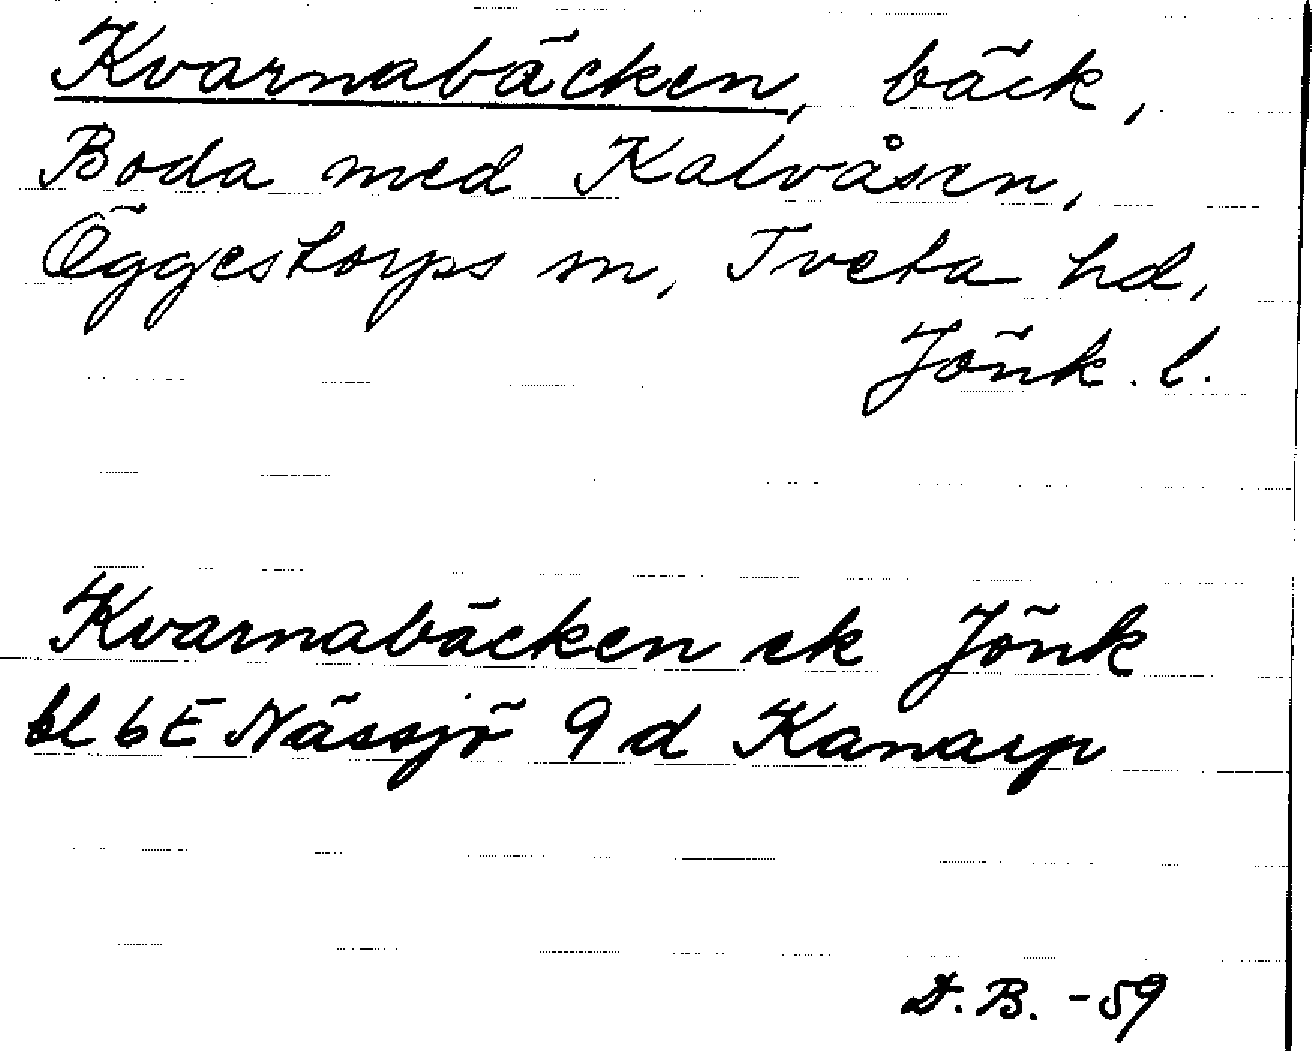 Kvarnabäcken, bäck,
Boda med Kalvåsen,
Öggestorps sn, Tveta hd,
Jönk. l.
Kvarnabäcken ek Jönk
bl 6E Nässjö 9 d Kanarp
D.B. -59